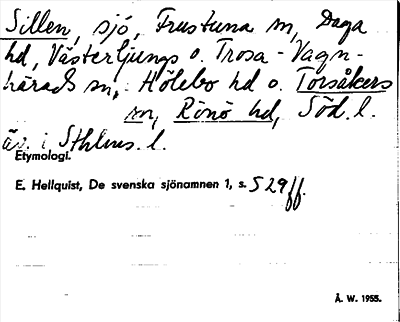 Sillen, sjö, Frustuna sn, Daga
hd, Västerljungs o. Trosa-Vagn-
härads sn, Hölebo hd o. Torsåkers
sn, Rönö hd, Söd. l.
äv. i Sthlms. l.
Etymologi.
E. Hellquist, De svenska sjönamnen 1, s. 529ff.
Å. W. 1955.